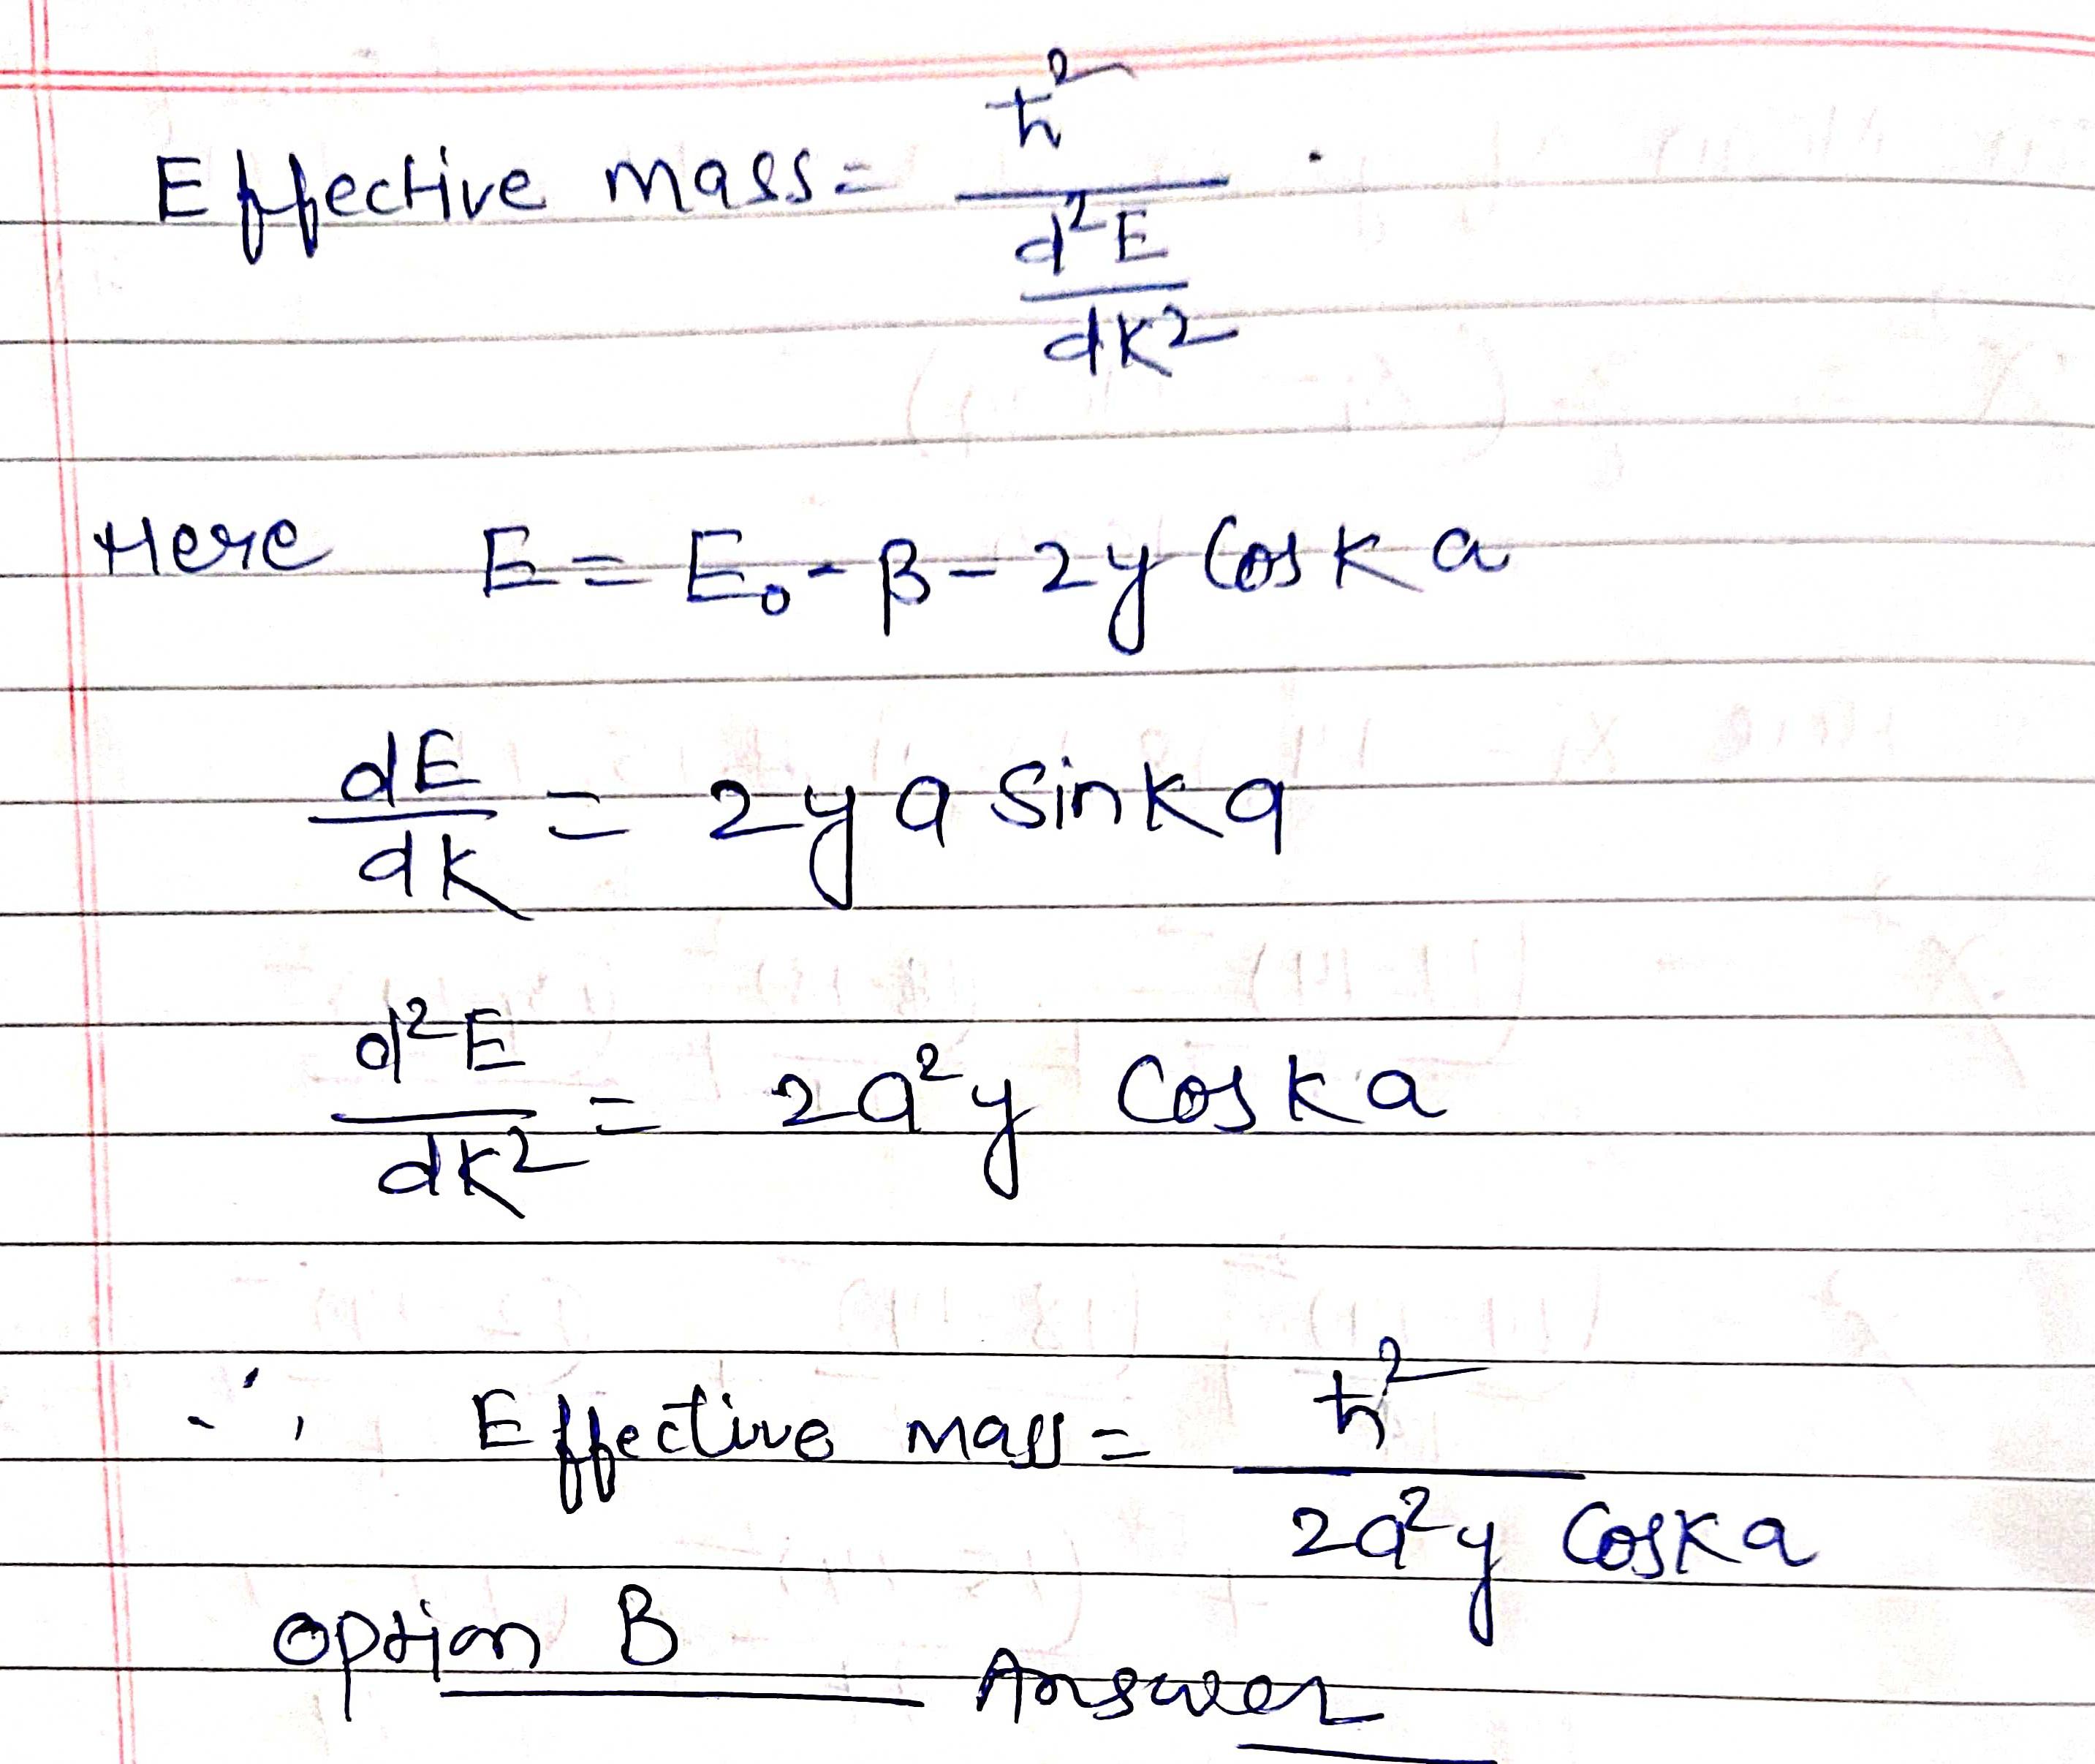 Effective mass = ħ² / (d²E / dk²)
Here E = E₀ - β - 2y Cos k a
dE / dk = 2y a Sin k a
d²E / dk² = 2a²y Cos k a
∴ Effective mass = ħ² / (2a²y Cos k a)
Option B Answer